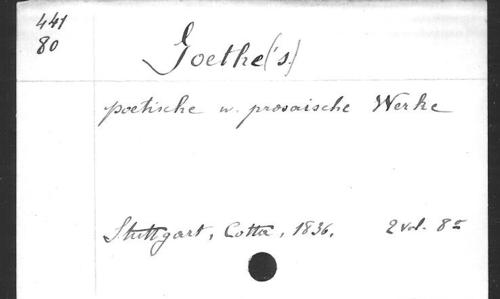 441
80
Goethe('s)
poetische u. prosaische Werke
Stuttgart, Cotta, 1836. 2 vol. 8º